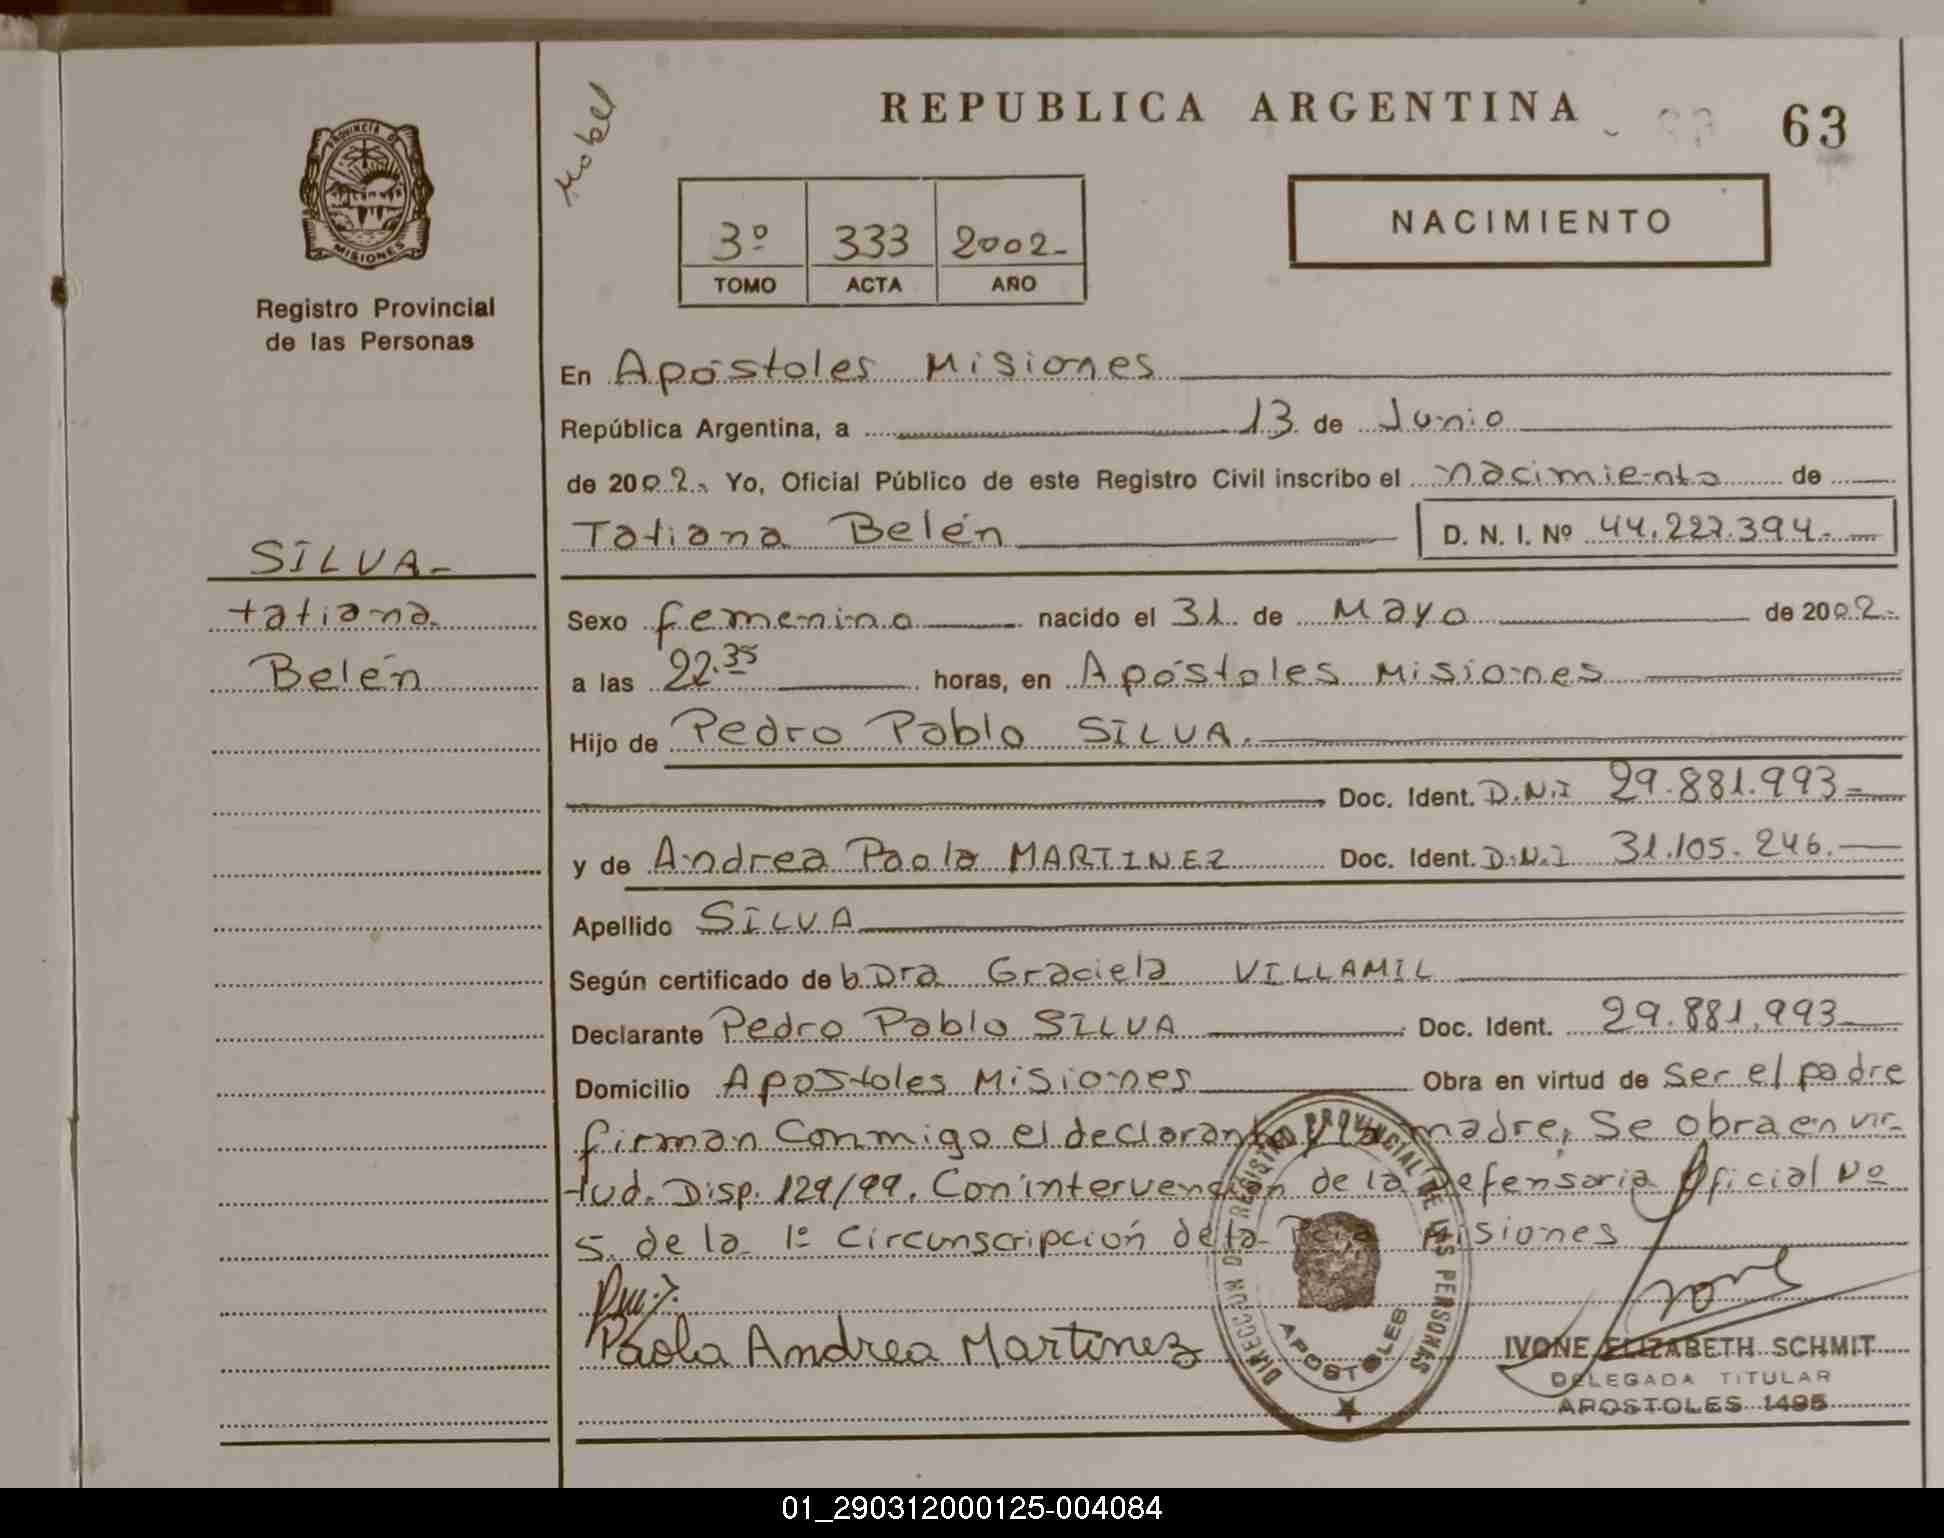 REPUBLICA ARGENTINA
63
PROVINCIA DE
MISIONES
Registro Provincial
de las Personas
3º 333 2002-
TOMO ACTA AÑO
NACIMIENTO
En Apóstoles Misiones
República Argentina, a 13 de Junio
de 2002. Yo, Oficial Público de este Registro Civil inscribo el nacimiento de
Tatiana Belén D. N. I. Nº 44.227.394.-
SILVA-
tatiana
Belén
Sexo femenino nacido el 31 de Mayo de 2002.-
a las 22.35 horas, en Apóstoles Misiones
Hijo de Pedro Pablo SILVA.
Doc. Ident. D.N.I 29.881.993-
y de Andrea Paola MARTINEZ Doc. Ident. D.N.I 31.105.246.-
Apellido SILVA
Según certificado de Dra Graciela VILLAMIL
Declarante Pedro Pablo SILVA Doc. Ident. 29.881.993-
Domicilio Apostoles Misiones Obra en virtud de Ser el padre
firman Conmigo el declarante y la madre, Se obra en vir-
tud. Disp. 129/99. Con intervención de la Defensoria Oficial Nº
5. de la 1º Circunscripción de la Pcia Misiones
Paola Andrea Martinez
DIRECCION DE REGISTRO PROVINCIAL DE LAS PERSONAS
APOSTOLES
IVONE ELIZABETH SCHMIT
DELEGADA TITULAR
APOSTOLES 1495
01_290312000125-004084